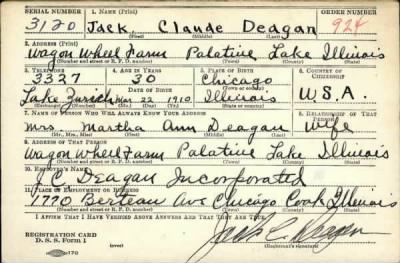 SERIAL NUMBER 1. NAME (Print) ORDER NUMBER
3120 Jack Claude Deagan 924
(First) (Middle) (Last)
2. ADDRESS (Print)
Wagon Wheel Farm Palatine Lake Illinois
(Number and street or R. F. D. number) (Town) (County) (State)
3. TELEPHONE 4. AGE IN YEARS 5. PLACE OF BIRTH 6. COUNTRY OF CITIZENSHIP
3327 30 Chicago
(Town or county)
DATE OF BIRTH U.S.A.
Lake Zurich Mar 22 1910 Illinois
(Exchange) (Number) (Mo.) (Day) (Yr.) (State or country)
7. NAME OF PERSON WHO WILL ALWAYS KNOW YOUR ADDRESS 8. RELATIONSHIP OF THAT PERSON
Mrs. Martha Ann Deagan Wife
(Mr., Mrs., Miss) (First) (Middle) (Last)
9. ADDRESS OF THAT PERSON
Wagon Wheel Farm Palatine Lake Illinois
(Number and street or R. F. D. number) (Town) (County) (State)
10. EMPLOYER'S NAME
J C Deagan Incorporated
11. PLACE OF EMPLOYMENT OR BUSINESS
1770 Berteau Ave Chicago Cook Illinois
(Number and street or R. F. D. number) (Town) (County) (State)
I AFFIRM THAT I HAVE VERIFIED ABOVE ANSWERS AND THAT THEY ARE TRUE.
REGISTRATION CARD
D. S. S. Form 1 Jack C Deagan
(Registrant's signature)